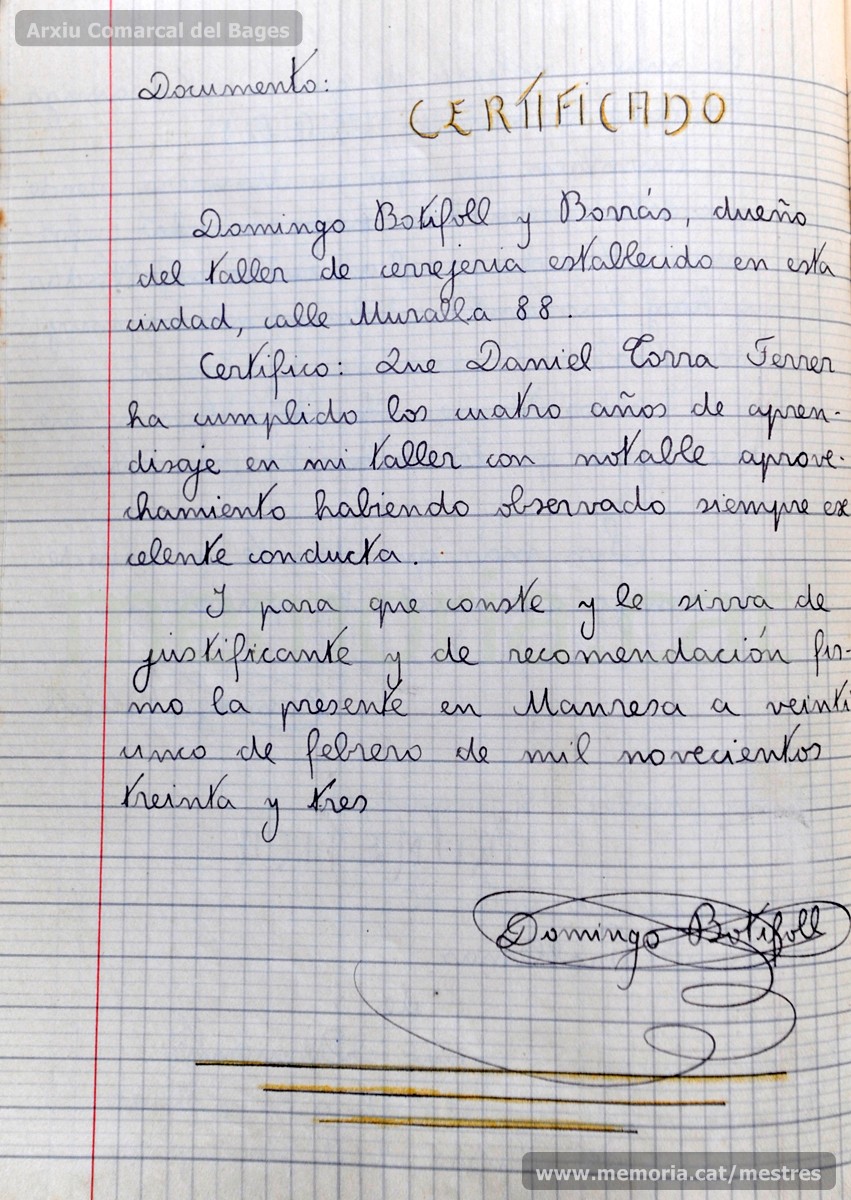 Arxiu Comarcal del Bages
Documento:
CERTIFICADO
Domingo Botifoll y Borrás, dueño
del taller de cerrejeria establecido en esta
ciudad, calle Muralla 88.
Certifico: Que Daniel Torra Ferrer
ha cumplido los cuatro años de apren-
disaje en mi taller con notable aprove-
chamiento habiendo observado siempre ex
celente conducta.
I para que conste y le sirva de
justificante y de recomendación fir-
mo la presente en Manresa a veinti
cinco de febrero de mil novecientos
treinta y tres
Domingo Botifoll
www.memoria.cat/mestres